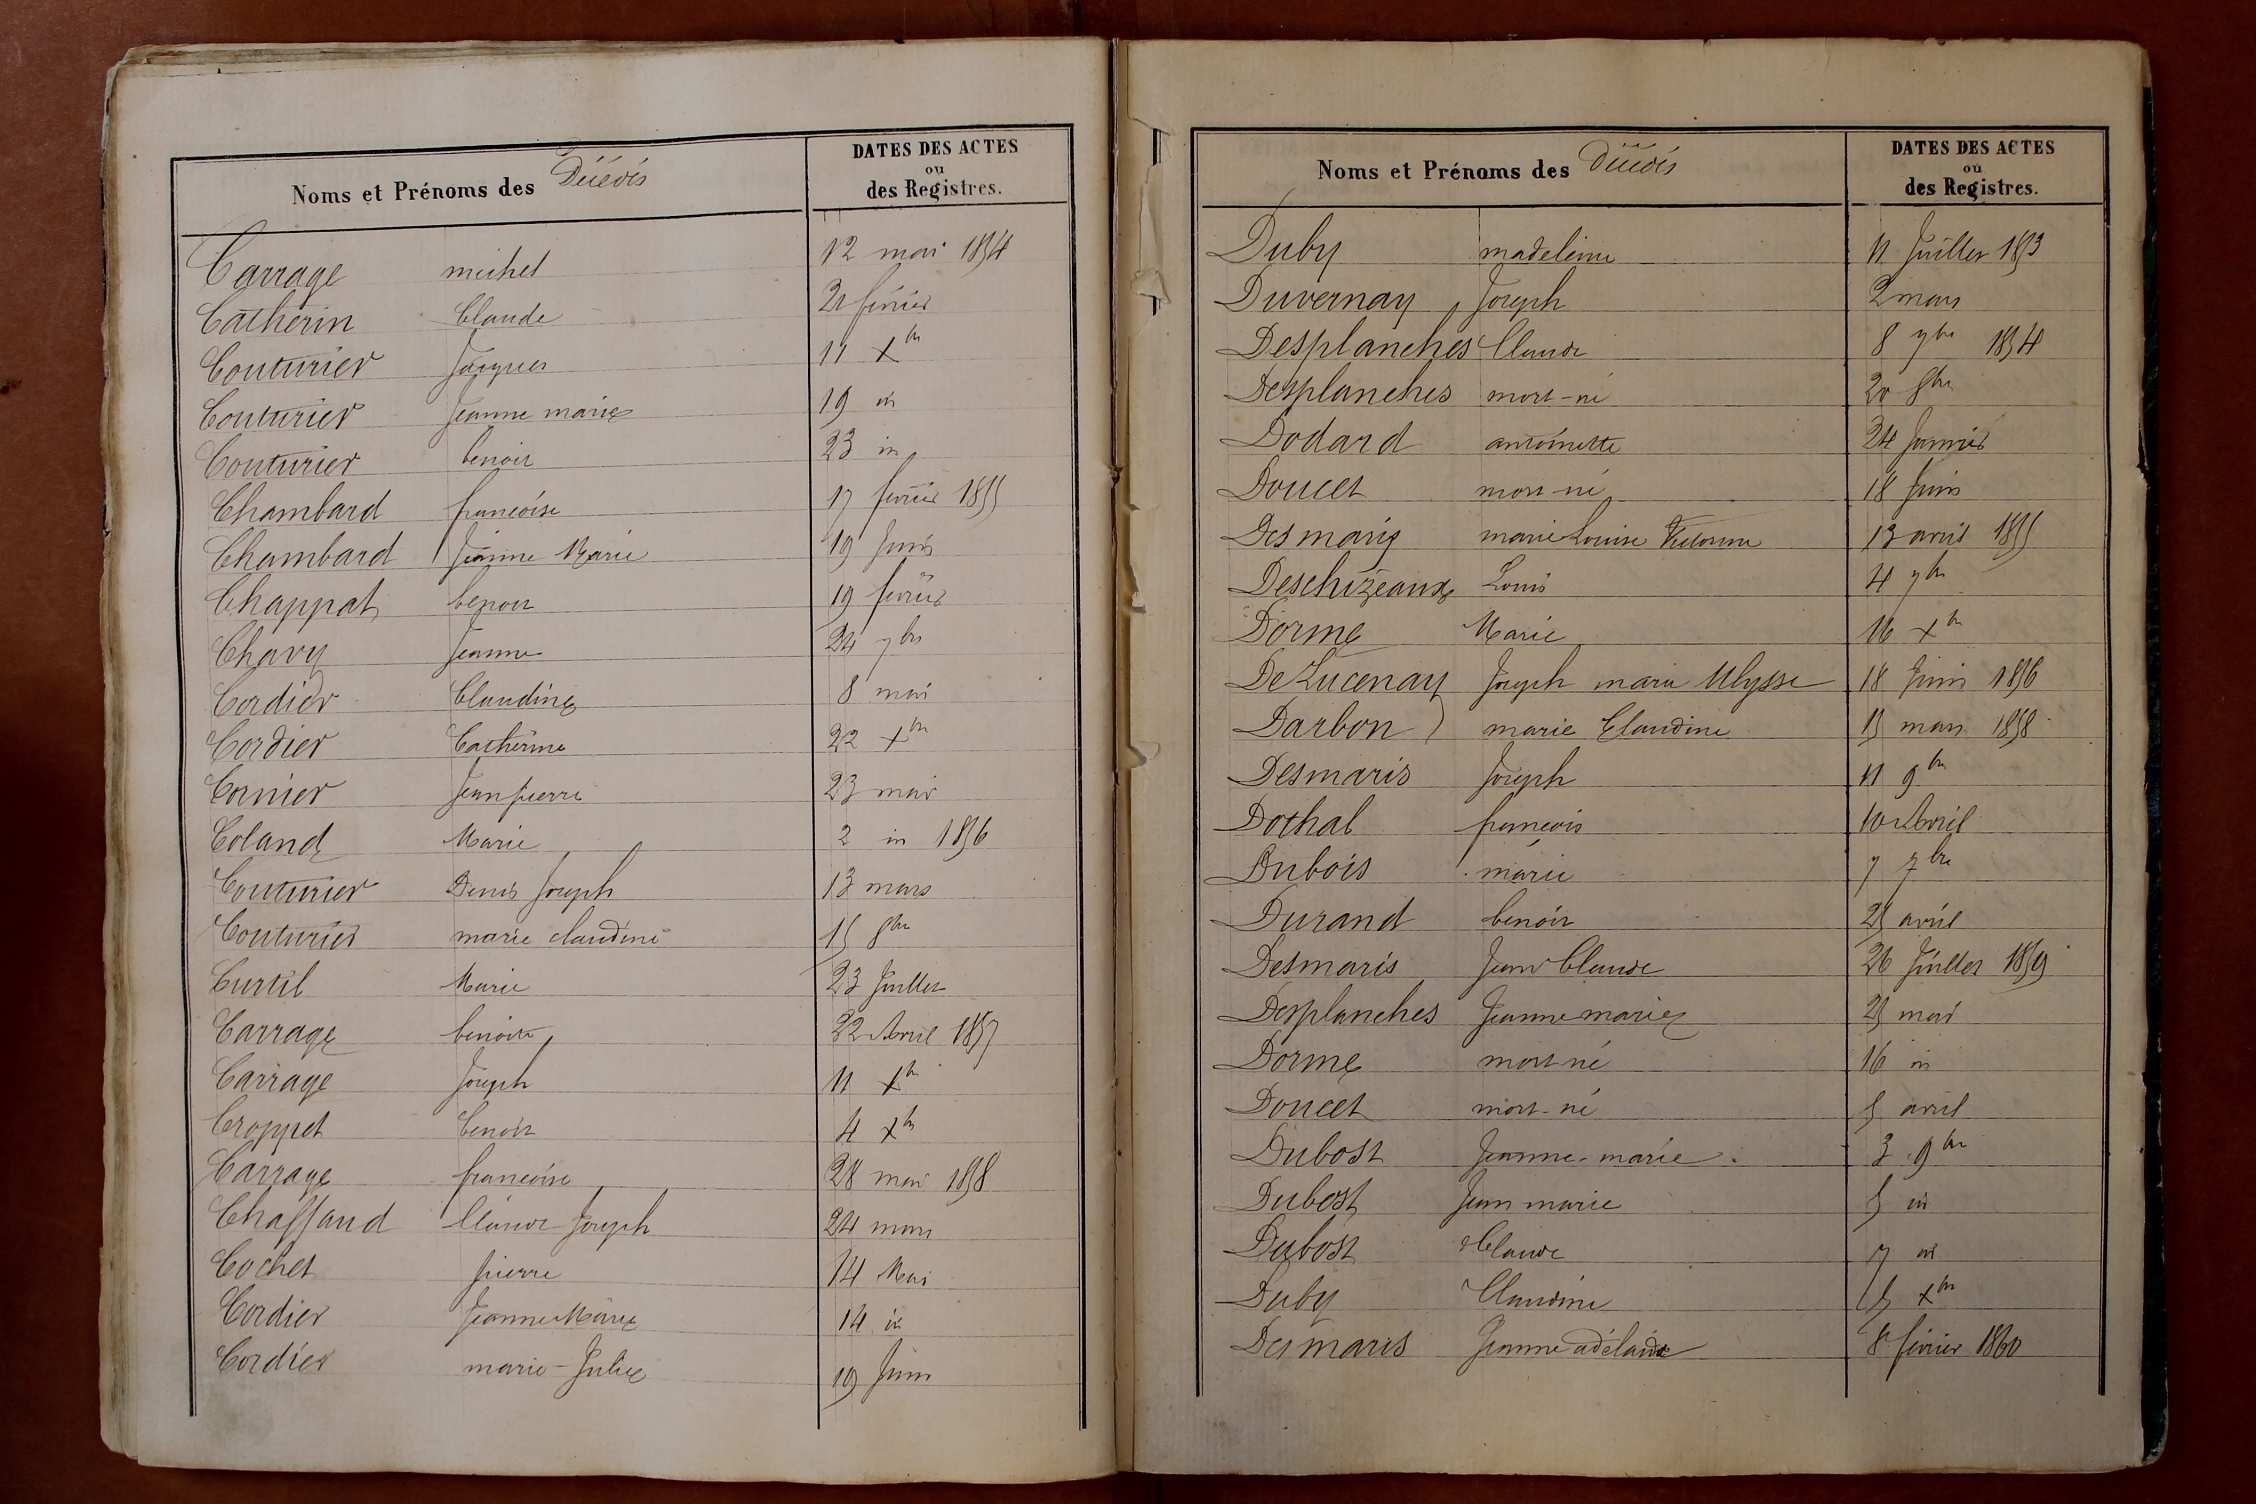 Noms et Prénoms des Décédés
DATES DES ACTES
ou
des Registres.
Carrage michel 12 mai 1854
Catherin Claude 21 février
Couturier Jacques 11 Xbre
Couturier Jeanne marie 19 id
Couturier benoit 23 id
Chambard francoise 17 février 1855
Chambard Jeanne Marie 19 Juin
Chappat benoit 19 février
Chavy Jeanne 24 7bre
Cordier Claudine 8 mai
Cordier Catherine 22 Xbre
Cornier Jean pierre 23 mai
Coland Marie 2 id 1856
Couturier Denis Joseph 13 mars
Couturier marie claudine 15 8bre
Curtil Marie 23 Juillet
Carrage benoite 22 Avril 1857
Carrage Joseph 11 Xbre
Croppet benoit 4 Xbre
Carrage francoise 28 mai 1858
Chaffaud Claude Joseph 24 mars
Cochet pierre 14 Mai
Cordier Jeanne Marie 14 id
Cordier marie-Julie 19 Juin
Noms et Prénoms des Décédés
DATES DES ACTES
ou
des Registres.
Duby madeleine 11 Juillet 1853
Duvernay Joseph 2 mars
Desplanches Claude 8 9bre 1854
Desplanches mort-né 20 8bre
Dodard antoinette 24 Janvier
Doucet mort-né 18 Juin
Desmaris marie Louise Victorine 13 avril 1855
Deschizeaux Louis 4 7bre
Dorme Marie 16 Xbre
De Lucenay Joseph marie Ulysse 18 Juin 1856
Darbon marie Claudine 15 mars 1858
Desmaris Joseph 11 9bre
Dothal francois 10 Avril
Dubois marie 7 7bre
Durand benoit 25 avril
Desmaris Jean Claude 26 Juillet 1859
Desplanches Jeanne marie 25 mai
Dorme mort-né 16 id
Doucet mort-né 5 avril
Dubost Jeanne-marie 3 9bre
Dubost Jean marie 5 id
Dubost Claude 7 id
Duby Claudine 15 Xbre
Desmaris Jeanne adélaide 8 février 1860